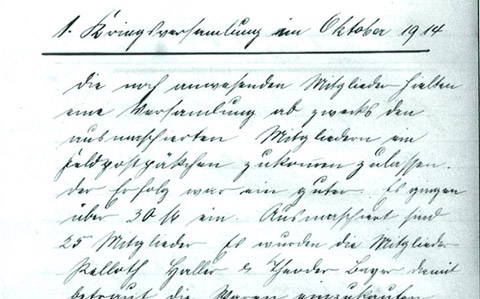 1. Kriegsversamlung im Oktober 1914
die noch anwesenden Mitglieder hielten
eine Versamlung ab zwecks den
ausmaschierten Mitgliedern ein
Feldpostpäkchen zukomen zulassen.
der Erfolg war ein guter. Es gingen
über 30 M ein. Ausmaschiert sind
25 Mitglieder Es wurden die Mitglieder
Haller & Theodor Bayer damit
betraut die Waren einzukaufen